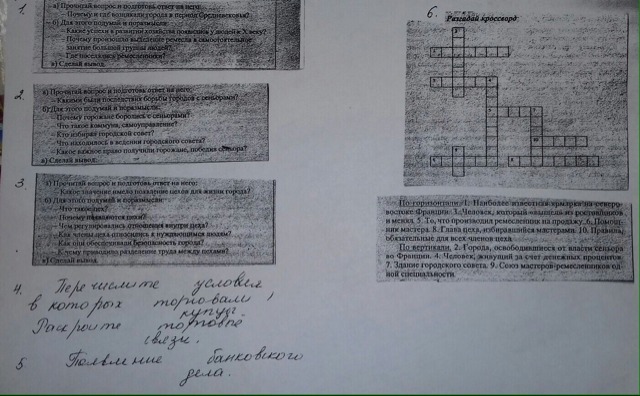 1.
а) Прочитай вопрос и подготовь ответ на него:
– Почему и где возникали города в период Средневековья?
б) Для этого подумай и поразмысли:
– Какие успехи в развитии хозяйства появились у людей к X веку?
– Почему произошло выделение ремесла в самостоятельное
занятие большой группы людей?
– Где поселялись ремесленники?
в) Сделай вывод.
2.
а) Прочитай вопрос и подготовь ответ на него:
– Какими были последствия борьбы городов с сеньорами?
б) Для этого подумай и поразмысли:
– Почему горожане боролись с сеньорами?
– Что такое коммуна, самоуправление?
– Кто избирал городской совет?
– Что находилось в ведении городского совета?
– Какое важное право получили горожане, победив сеньора?
в) Сделай вывод.
3.
а) Прочитай вопрос и подготовь ответ на него:
– Какое значение имело появление цехов для жизни города?
б) Для этого подумай и поразмысли:
– Что такое цех?
– Почему появляются цехи?
– Чем регулировались отношения внутри цеха?
– Как члены цеха относились к нуждающимся людям?
– Как они обеспечивали безопасность города?
– К чему приводило разделение труда между цехами?
в) Сделай вывод.
4. Перечислите условия
в которых торговали
купцы.
Раскройте торговые
связи.
5 Появление банковского
дела.
6. Разгадай кроссворд
По горизонтали: 1. Наиболее известная ярмарка на северо-
востоке Франции. 3. Человек, который вышел из ростовщиков
и менял. 5. То, что производил ремесленник на продажу. 6. Помощ-
ник мастера. 8. Глава цеха, избиравшийся мастерами. 10. Правила,
обязательные для всех членов цеха.
По вертикали: 2. Города, освободившиеся от власти сеньора
во Франции. 4. Человек, живущий за счет денежных процентов.
7. Здание городского совета. 9. Союз мастеров-ремесленников од-
ной специальности.